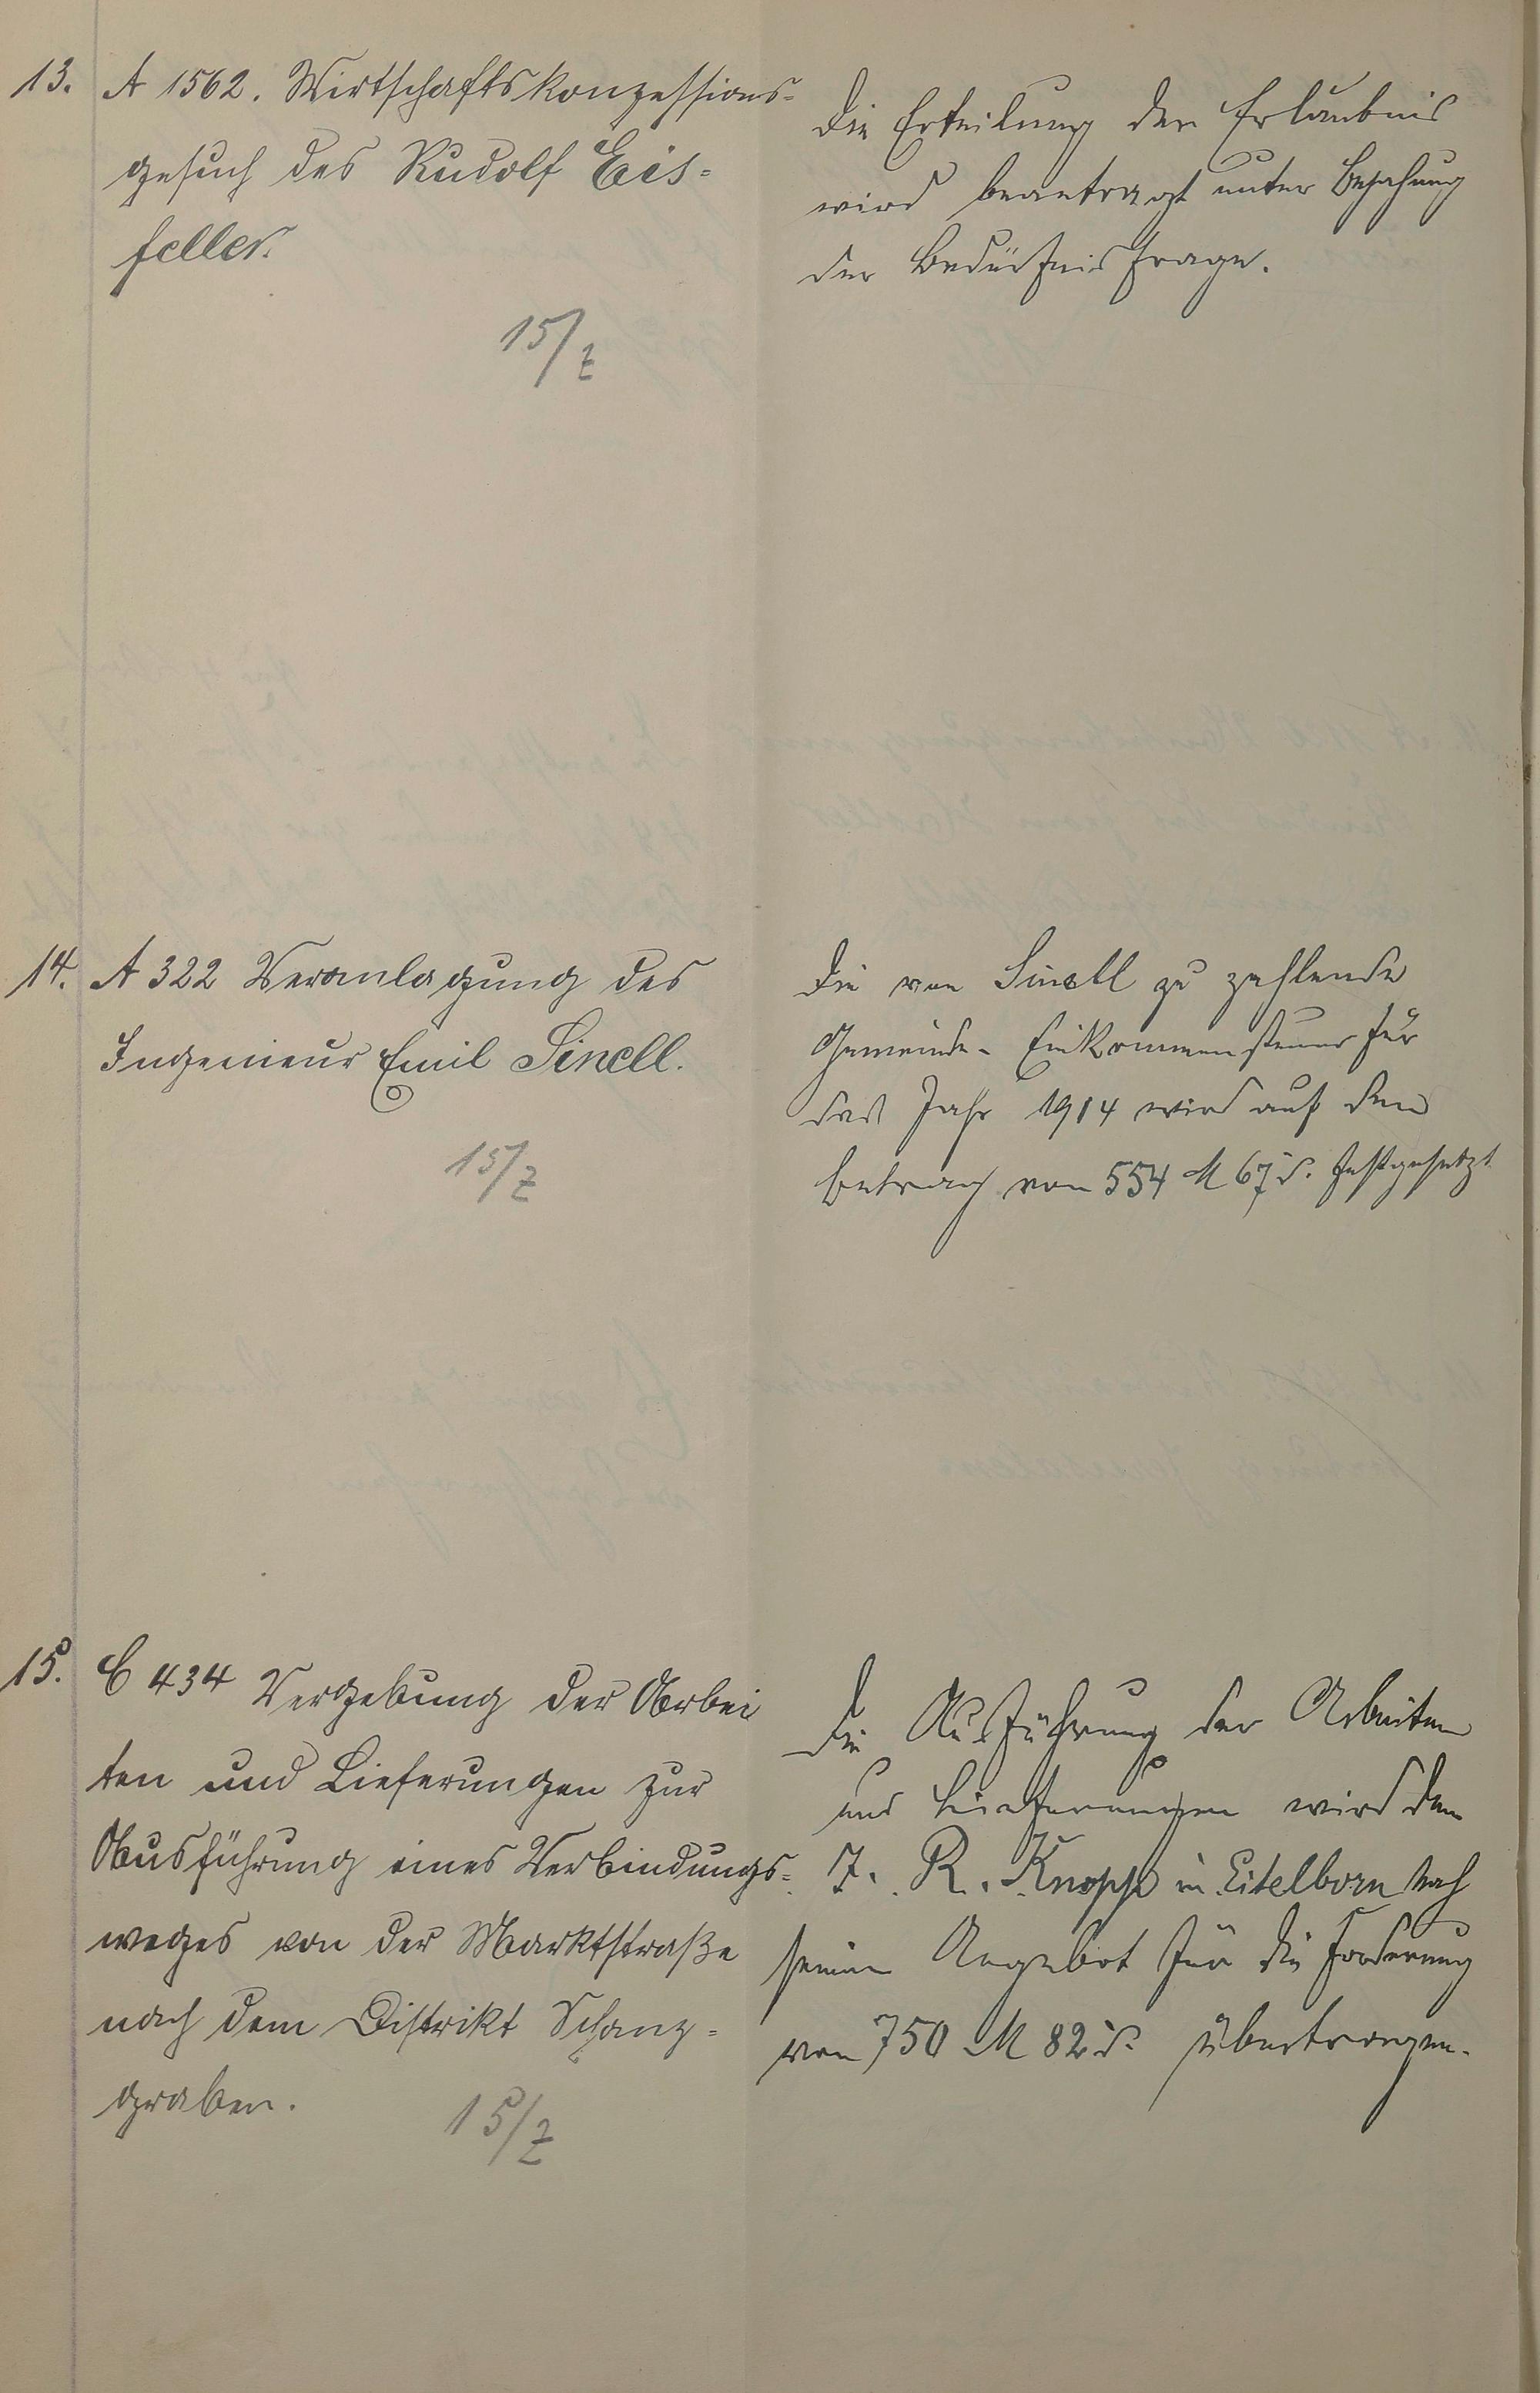 13. A 1562. Wirtschaftskonzessions-
gesuch des Rudolf Eis-
feller.
15/7
Die Erteilung der Erlaubnis
wird beantragt unter Bejahung
der Bedürfnisfrage.
14. A 322 Veranlagung des
Ingenieur Emil Sinell.
15/7
Die von Sinell zu zahlende
Gemeinde-Einkommensteuer für
das Jahr 1914 wird auf den
Betrag von 554 M 67 d. festgesetzt
15. C 434 Vergebung der Arbei
ten und Lieferungen zur
Ausführung eines Verbindungs-
weges von der Marktstraße
nach dem Distrikt Schanz-
graben.
15/7
Die Ausführung der Arbeiten
und Lieferungen wird dem
J. R. Knopp in Eitelborn nach
seinem Angebot für die Forderung
von 750 M 82 d. übertragen.